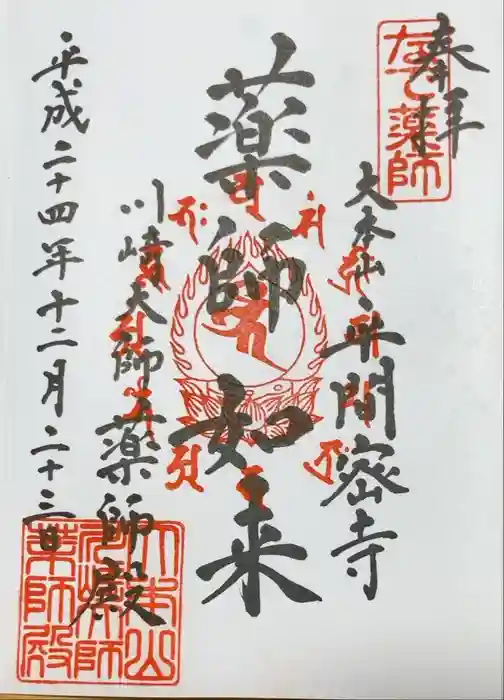 奉拝
大本山 平間密寺
薬師如来
川崎大師 薬師殿
平成二十四年十二月二十三日
大本山
川崎大師
薬師殿